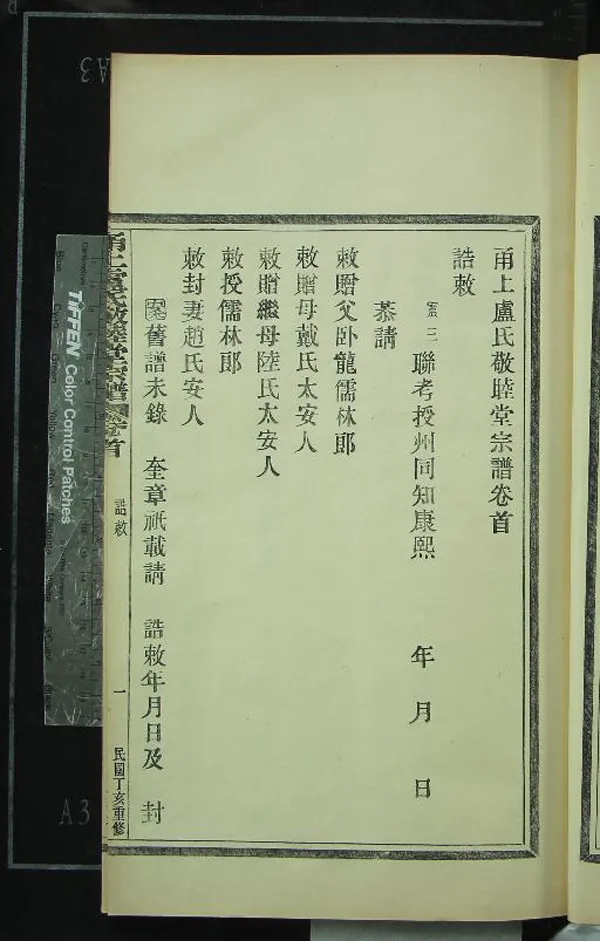 甬上盧氏敬睦堂宗譜卷首
誥敕
震三 聯考授州同知康熙 年 月 日
恭請
敕贈父卧龍儒林郎
敕贈母戴氏太安人
敕贈繼母陸氏太安人
敕授儒林郎
敕封妻趙氏安人
案舊譜未錄 奎章祇載請 誥敕年月日及 封
甬上盧氏敬睦堂宗譜 卷首
誥敕
一
民國丁亥重修
TIFFEN Color Control Patches
A3
A3